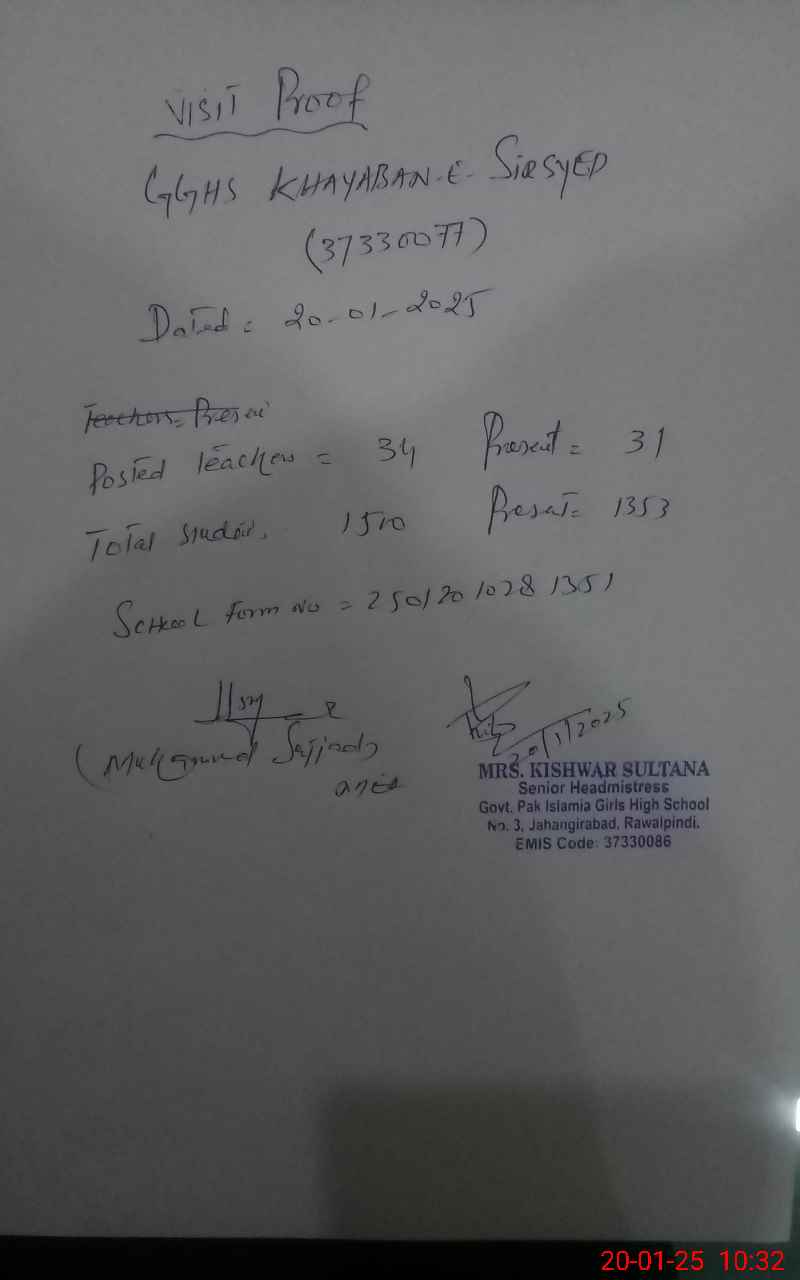 VISIT Proof
GGHS KHAYABAN-E-SIRSYED
(37330077)
Dated: 20-01-2025
Teachers= Presen
Posted Teachers = 34 Present = 31
Total Studen. 1510 Presat= 1353
School Form No = 2501201028 1351
20/1/2025
(Muhammad Sajjad)
MRS. KISHWAR SULTANA
Senior Headmistress
Govt. Pak Islamia Girls High School
No. 3, Jahangirabad, Rawalpindi.
EMIS Code: 37330086
20-01-25 10:32